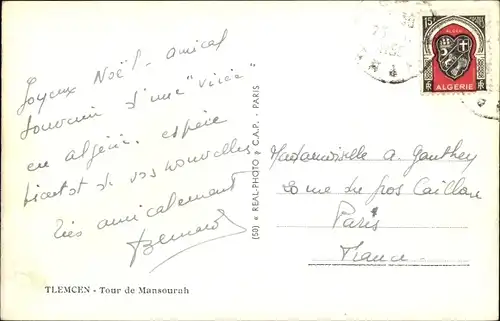 Joyeux Noël. amical
souvenir d'une "virée"
en algérie. espère
bientôt de vos nouvelles
très amicalement
Bernard
TLEMCEN - Tour de Mansourah
(50) « REAL-PHOTO » C.A.P. - PARIS
15
ALGER
ALGERIE
Mademoiselle a. Gauthey
rue du gros Caillou
Paris
France